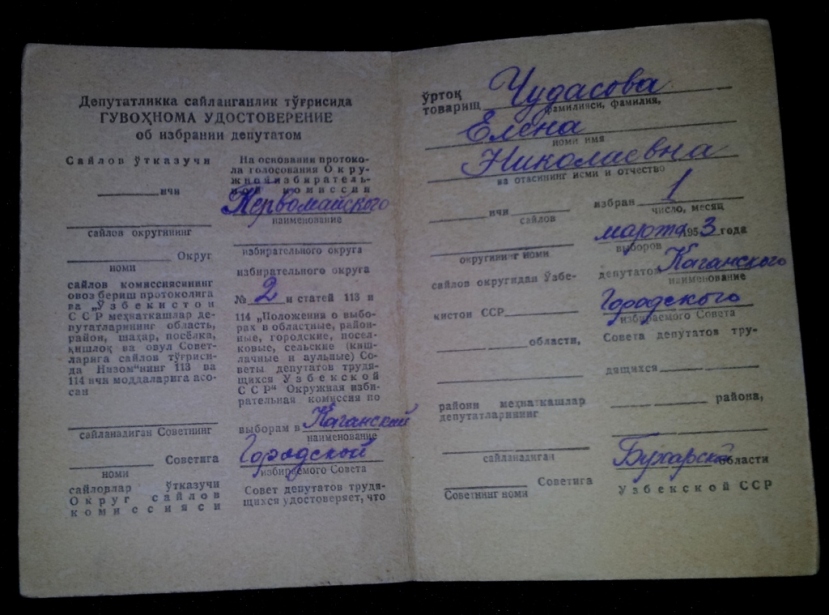 Депутатликка сайланганлик тўғрисида
ГУВОҲНОМА УДОСТОВЕРЕНИЕ
об избрании депутатом
Сайлов ўтказучи
ичи
сайлов округининг
Округ
номи
сайлов комиссиясининг
овоз бериш протоколига
ва „Ўзбекистон
ССР меҳнаткашлар де-
путатларининг область,
район, шаҳар, посёлка,
қишлоқ ва овул Совет-
ларига сайлов тўғриси-
да Низом“нинг 113 ва
114 нчи моддаларига асо-
сан
сайланадиган Советнинг
Советига
номи
сайловлар ўтказучи
Округ сайлов
комиссияси
На основании протоко-
ла голосования Окру-
жной избиратель-
ной комиссии
Первомайского
наименование
избирательного округа
избирательного округа
№ 2 и статей 113 и
114 „Положения о выбо-
рах в областные, район-
ные, городские, посел-
ковые, сельские (киш-
лачные и аульные) Со-
веты депутатов трудя-
щихся Узбекской
ССР“ Окружная изби-
рательная комиссия по
выборам в Каганский
наименование
Городской
избираемого Совета
Совет депутатов трудя-
щихся удостоверяет, что
ўртоқ
товарищ Чудасова
фамилияси, фамилия,
Елена
номи имя
Николаевна
ва отасининг исми и отчество
ичи
сайлов
округининг номи
сайлов округидан Ўзбе-
кистон ССР
области,
райони меҳнаткашлар
депутатларининг
сайланадиган
Советига
Советнинг номи
избран 1
число, месяц
марта 1953 года
выборов
депутатов Каганского
наименование
Городского
избираемого Совета
Совета депутатов тру-
дящихся
района,
Бухарской области
Узбекской ССР